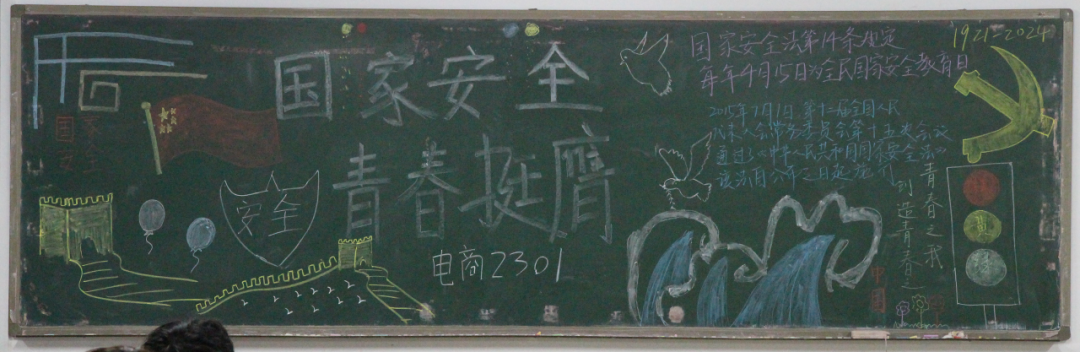 国家安全
青春挺膺
电商2301
安全
国家安全法第14条规定
每年4月15日为全民国家安全教育日
1921-2024
2015年7月1日,第十二届全国人民
代表大会常务委员会第十五次会议
通过了《中华人民共和国国家安全法》
该法自公布之日起施行
青春之我
创造青春之
中国